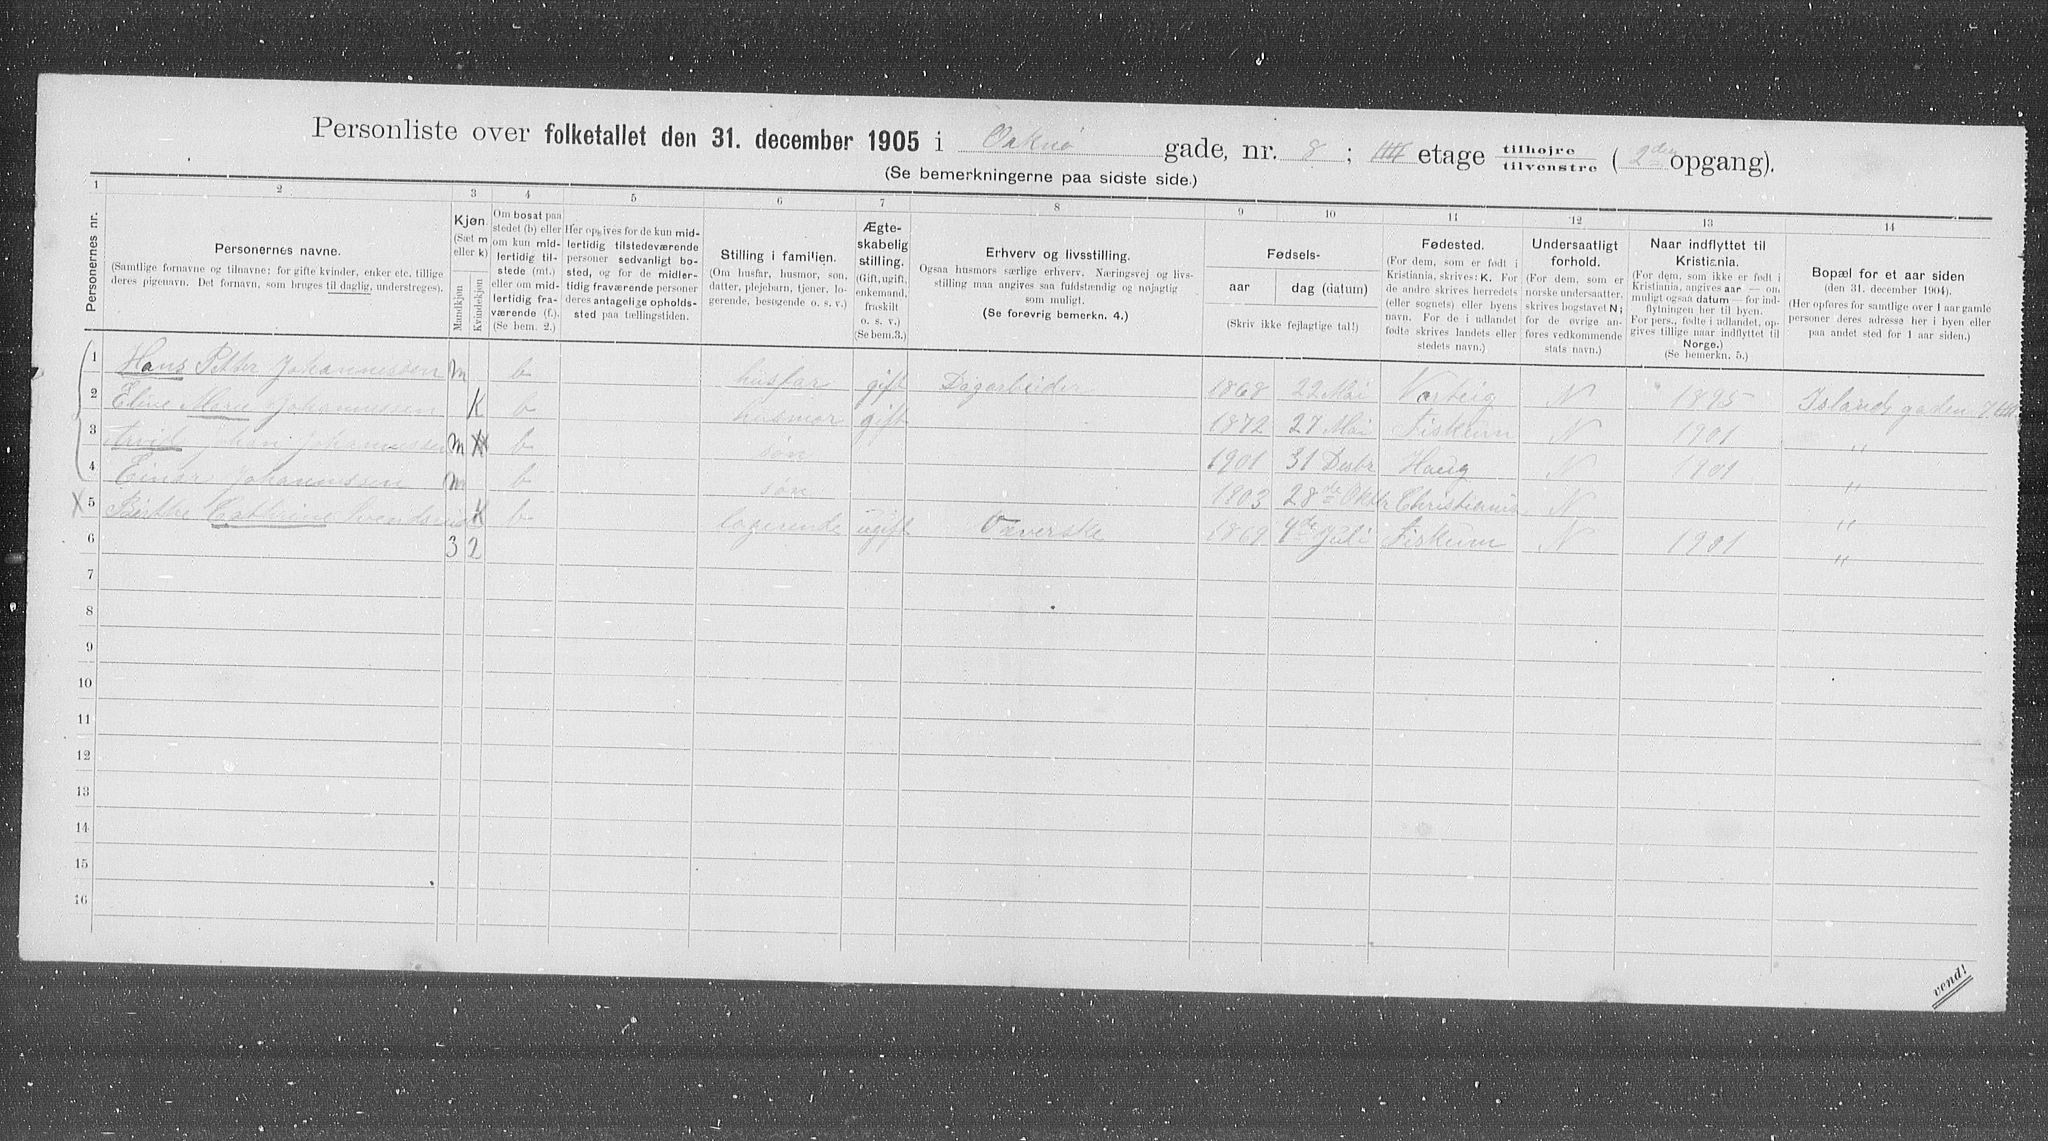 Personliste over folketallet den 31. december 1905 i gade, nr. 8; IIII etage tilhøjre tilvenstre (2den opgang).
(Se bemerkningerne paa sidste side.)
1 2 3 4 5 6 7 8 9 10 11 12 13 14
Personernes nr.
Personernes navne.
(Samtlige fornavne og tilnavne; for gifte kvinder, enker etc. tillige deres pigenavn. Det fornavn, som bruges til daglig, understreges).
Kjøn.
(Sæt m eller k)
Mandkjøn
Kvindekjøn
Om bosat paa stedet (b) eller om kun midlertidig tilstede (mt.) eller om midlertidig fraværende (f.). (Se bem. 2.)
Her opgives for de kun midlertidig tilstedeværende personer sedvanligt bosted, og for de midlertidig fraværende personer deres antagelige opholdssted paa tællingstiden.
Stilling i familien.
(Om husfar, husmor, søn, datter, plejebarn, tjener, logerende, besøgende o. s. v.)
Ægteskabelig stilling.
(Gift, ugift, enkemand, fraskilt o. s. v.)
(Se bem. 3.)
Erhverv og livsstilling.
Ogsaa husmors særlige erhverv. Næringsvej og livsstilling maa angives saa fuldstændig og nøjagtig som muligt.
(Se forøvrig bemerkn. 4.)
Fødsels-
aar
dag (datum)
(Skriv ikke fejlagtige tal!)
Fødested.
(For dem, som er født i Kristiania, skrives: K. For de andre skrives herredets (eller sognets) eller byens navn. For de i udlandet fødte skrives landets eller stedets navn.)
Undersaatligt forhold.
(For dem, som er norske undersaatter, skrives bogstavet N; for de øvrige anføres vedkommende stats navn.)
Naar indflyttet til Kristiania.
(For dem, som ikke er født i Kristiania, angives aar — om muligt ogsaa datum — for indflytningen her til byen. For pers., fødte i udlandet, opgives tillige naar indflyttet til Norge.)
(Se bemerkn. 5.)
Bopæl for et aar siden
(den 31. december 1904).
(Her opføres for samtlige over 1 aar gamle personer deres adresse her i byen eller paa andet sted for 1 aar siden.)
1 Hans Petter Johannessen m b husfar gift Dagarbeider 1868 22 Mai Varteig N 1895 Islands gaden 7
2 Eline Marie Johannessen K b husmor gift 1872 27 Mai Fiskum N 1901 "
3 Arvid Johan Johannessen m b søn 1901 31 Desbr Haug N 1901 "
4 Einar Johannessen m b søn 1903 28de Oktbr Christiania N "
X 5 Birthe Cathrine Svendsrud K b logerende ugift Væverske 1869 4de Juli Fiskum N 1901 "
6 3 2
7
8
9
10
11
12
13
14
15
16
vend!